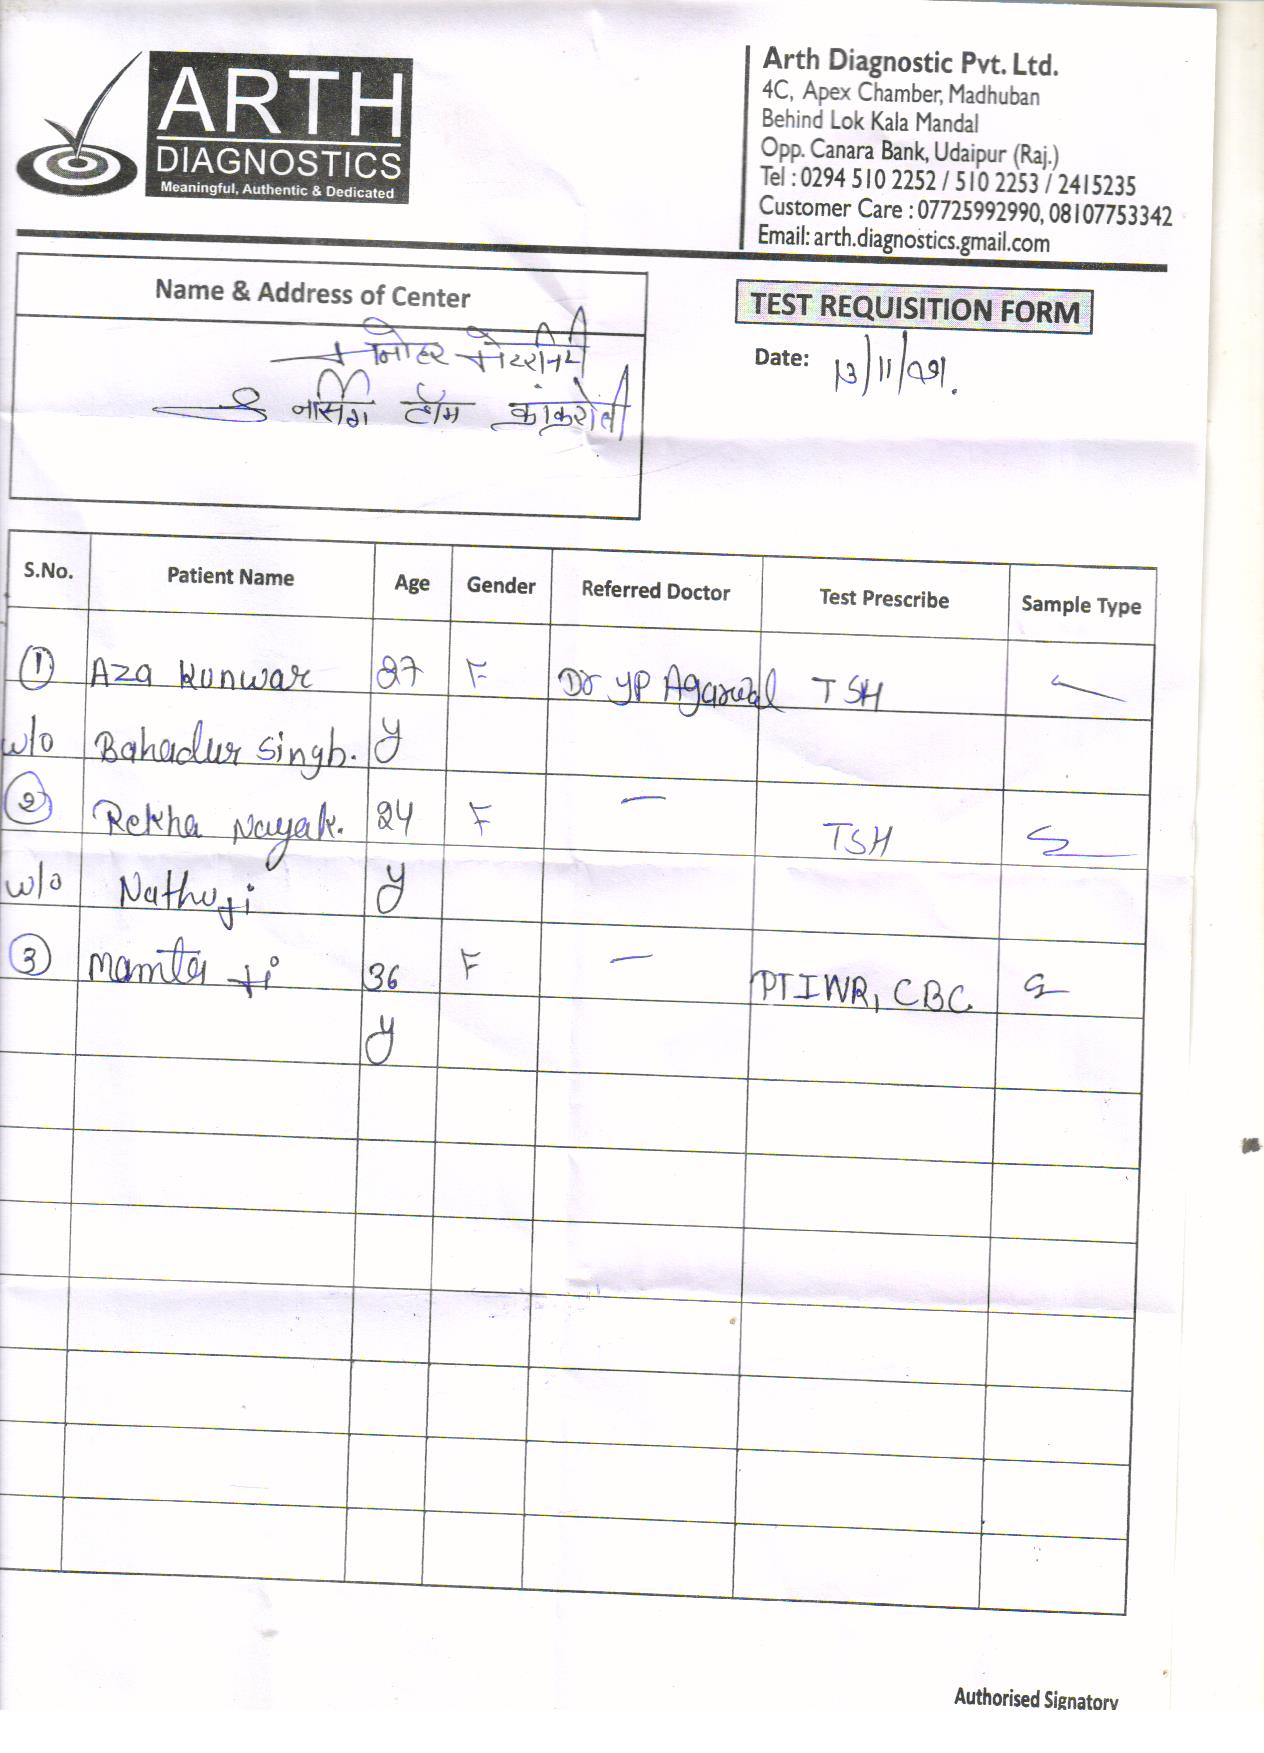 ARTH
DIAGNOSTICS
Meaningful, Authentic & Dedicated
Arth Diagnostic Pvt. Ltd.
4C, Apex Chamber, Madhuban
Behind Lok Kala Mandal
Opp. Canara Bank, Udaipur (Raj.)
Tel : 0294 510 2252 / 510 2253 / 2415235
Customer Care : 07725992990, 08107753342
Email: arth.diagnostics.gmail.com
Name & Address of Center
मेटरनिटी
नर्सिंग होम कांकरोली
TEST REQUISITION FORM
Date: 13/11/
S.No. Patient Name Age Gender Referred Doctor Test Prescribe Sample Type
1 Aza Kunwar 27 F Dr YP Agarwal TSH
w/o Bahadur Singh. y
2 Rekha Nayak. 24 F — TSH
w/o Nathuji y
3 Mamta ji 36 F — PTIWR, CBC
y
Authorised Signatory